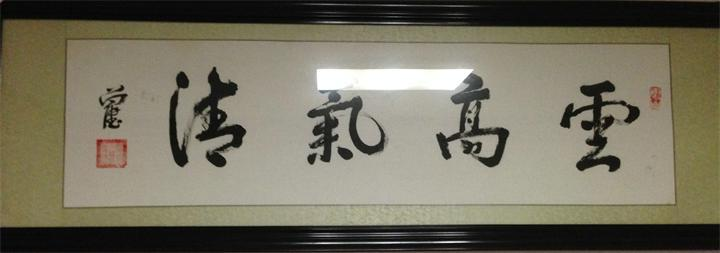 雲高氣清